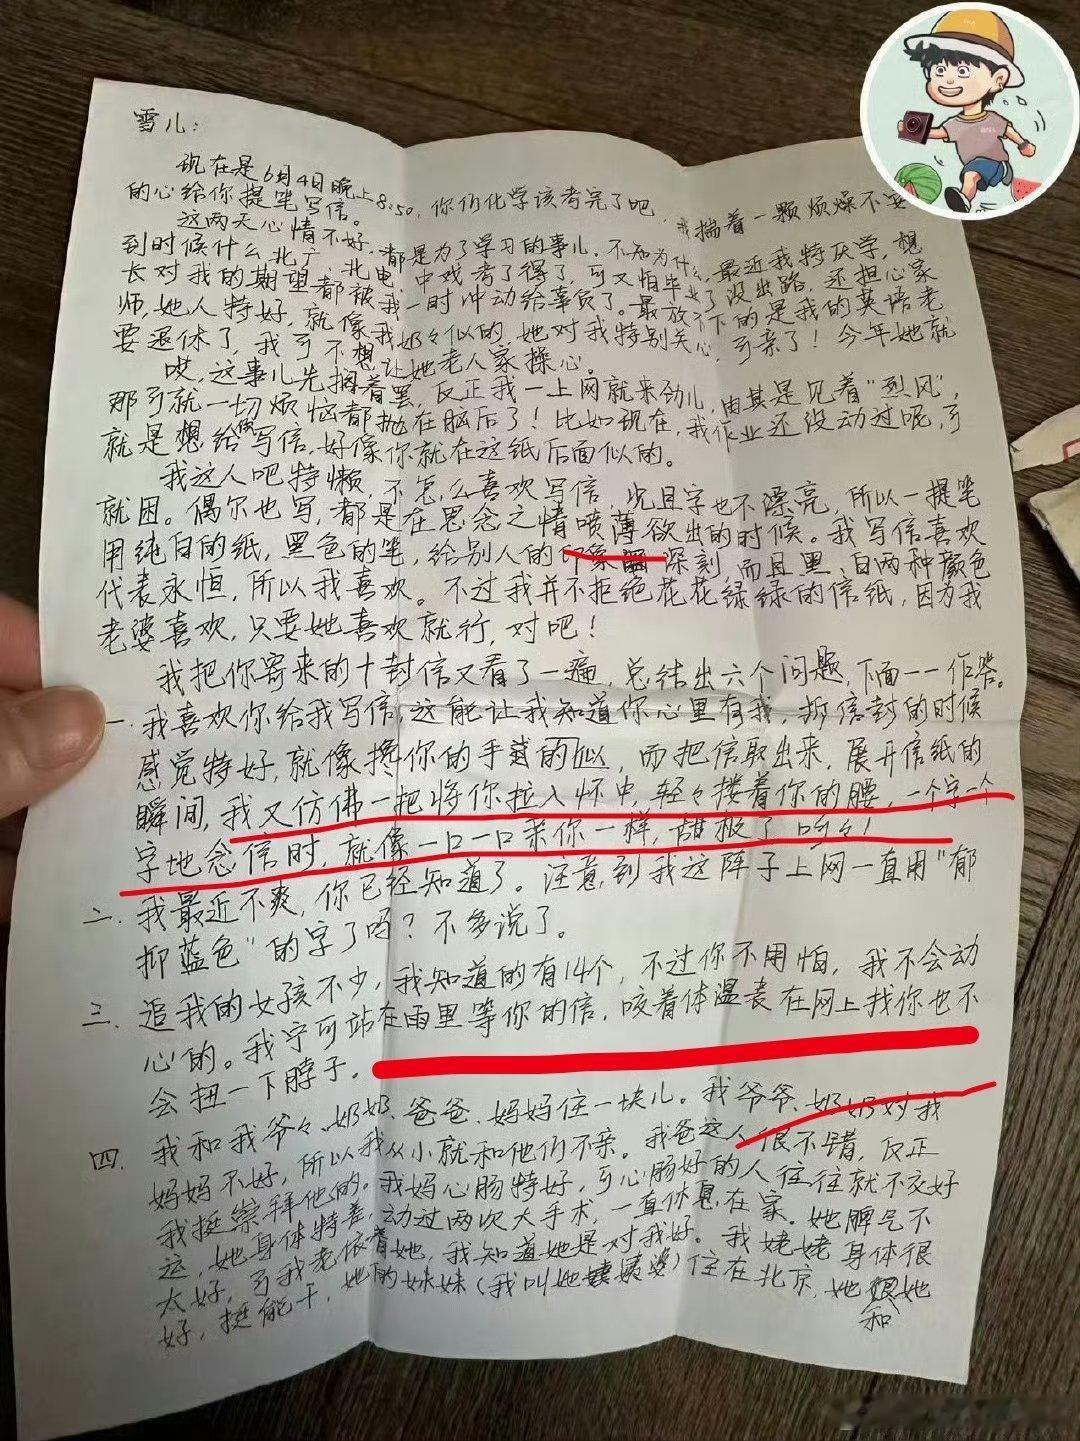 雪儿：
现在是6月4日晚上8:50，你们化学该考完了吧，我揣着一颗烦燥不安
的心给你提笔写信。
这两天心情不好，都是为了学习的事儿。不知为什么，最近我特厌学，想
到时候什么北广、北电、中戏考了得了，可又怕毕业了没出路，还担心家
长对我的期望都被我一时冲动给辜负了。最放不下的是我的英语老
师，她人特好，就像我奶々似的，她对我特别关心，可亲了！今年她就
要退休了，我可不想让她老人家操心。
哎，这事儿先搁着罢，反正我一上网就来劲儿，由其是见着“烈风”，
那可就一切烦恼都抛在脑后了！比如现在，我作业还没动过呢，可
就是想给你写信，好像你就在这纸后面似的。
我这人吧特懒，不怎么喜欢写信，况且字也不漂亮，所以一提笔
就困。偶尔也写，都是在思念之情喷薄欲出的时候。我写信喜欢
用纯白的纸，黑色的笔，给别人的印象深刻，而且黑、白两种颜色
代表永恒，所以我喜欢。不过我并不拒绝花花绿绿的信纸，因为我
老婆喜欢，只要她喜欢就行，对吧！
我把你寄来的十封信又看了一遍，总结出六个问题，下面一一作答。
一．我喜欢你给我写信，这能让我知道你心里有我，拆信封的时候
感觉特好，就像搀你的手似的，而把信取出来，展开信纸的
瞬间，我又仿佛一把将你拉入怀中，轻々搂着你的腰，一个字一个
字地念信时，就像一口一口亲你一样，甜极了 哈々！
二．我最近不爽，你已经知道了。注意到我这阵子上网一直用“郁
抑蓝色”的字了吗？不多说了。
三．追我的女孩不少，我知道的有14个，不过你不用怕，我不会动
心的。我宁可站在雨里等你的信，咬着体温表在网上找你也不
会扭一下脖子。
四．我和我爷々、奶奶、爸爸、妈妈住一块儿。我爷爷、奶奶对我
妈妈不好，所以我从小就和他们不亲。我爸这人很不错，反正
我挺崇拜他的。我妈心肠特好，可心肠好的人往往就不交好
运，她身体特差，动过两次大手术，一直休息在家。她脾气不
太好，可我老依着她，我知道她是对我好。我姥姥身体很
好，挺能干，她的妹妹（我叫她姨婆）住在北京，她和她